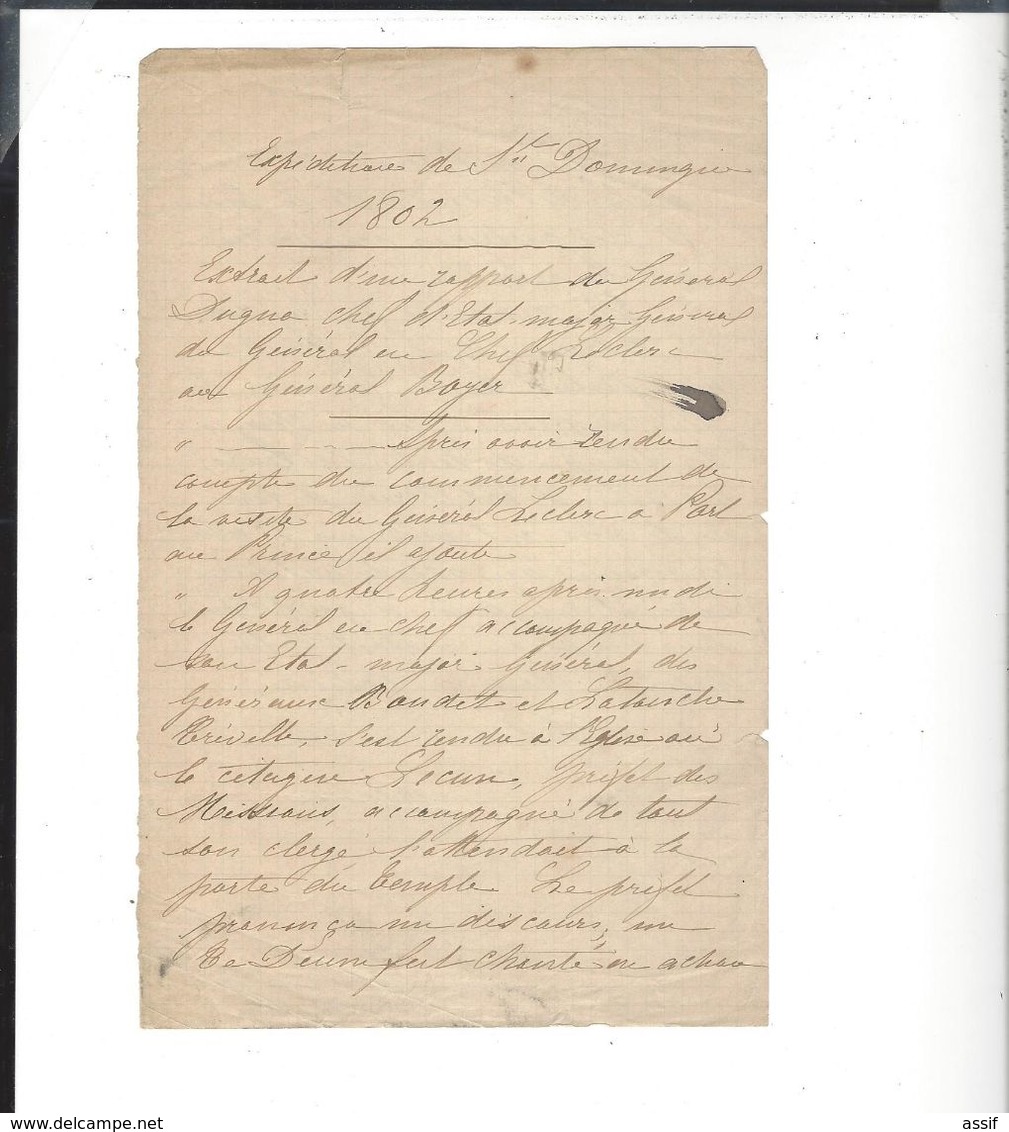 Expédition de St Domingue
1802
Extrait d'un rapport du Général
Dugua chef d'Etat-major Général
du Général en Chef Leclerc
au Général Boyer
" — — — — Après avoir rendu
compte du commencement de
la visite du Général Leclerc à Port
au Prince il ajoute
" A quatre heures après midi
le Général en chef accompagné de
son Etat-major Général, des
Généraux Boudet et Latouche
Tréville, s'est rendu à l'Eglise où
le citoyen Lecun, préfet des
Missions, accompagné de tout
son clergé l'attendait à la
porte du temple Le préfet
prononça un discours; un
Te Deum fut chanté en action
www.delcampe.net
assif